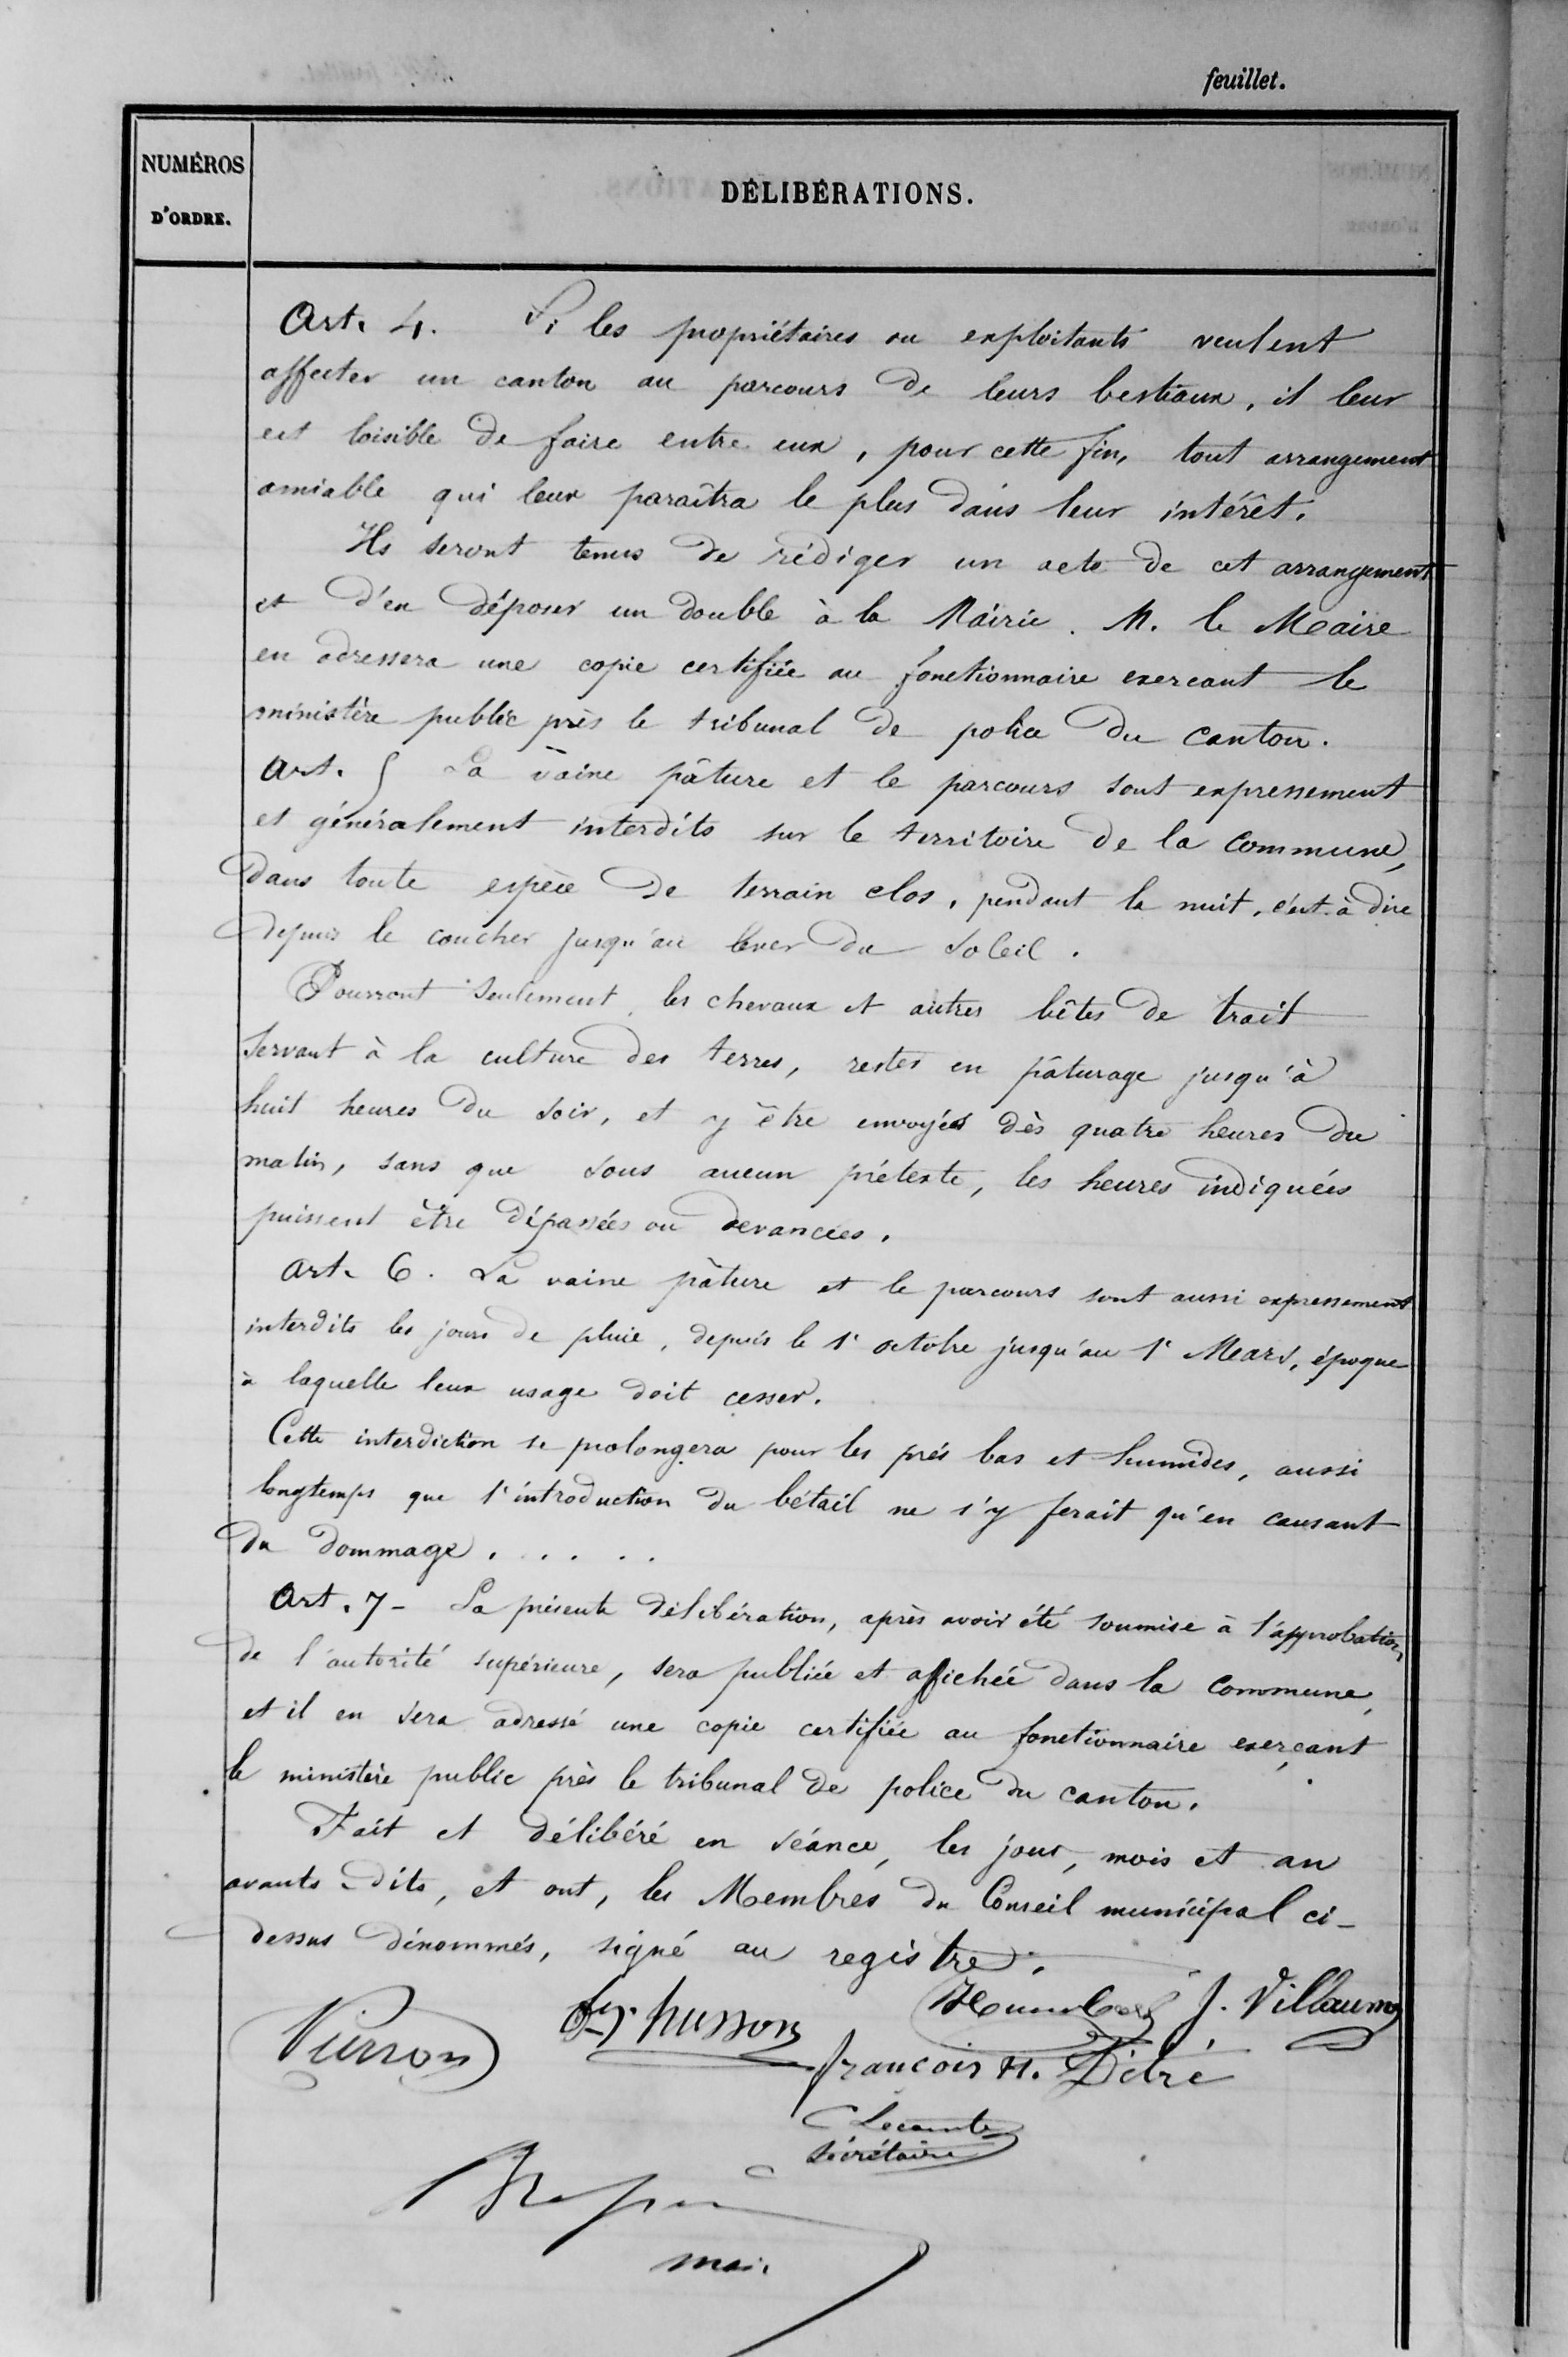 feuillet.
NUMÉROS
D'ORDRE.
DÉLIBÉRATIONS.
Art. 4. Si les propriétaires ou exploitants veulent
affecter un canton au parcours de leurs bestiaux, il leur
est loisible de faire entre eux, pour cette fin, tout arrangement
amiable qui leur paraîtra le plus dans leur intérêt.
Ils seront tenus de rédiger un acte de cet arrangement
et d'en déposer un double à la Mairie. M. le Maire
en adressera une copie certifiée au fonctionnaire exercant le
ministère public près le tribunal de police du canton.
Art. 5 La vaine pâture et le parcours sont expressement
et généralement interdits sur le territoire de la commune,
dans toute espèce de terrain clos, pendant la nuit, c'est-à dire
depuis le coucher jusqu'au lever du soleil.
Pourront seulement, les chevaux et autres bêtes de trait
servant à la culture des terres, rester en pâturage jusqu'à
huit heures du soir, et y être envoyés dès quatre heures du
matin, sans que sous aucun prétexte, les heures indiquées
puissent être dépassées ou devancées.
Art. 6. La vaine pâture et le parcours sont aussi expressement
interdits les jours de pluie, depuis le 1r octobre jusqu'au 1r Mars, époque
à laquelle leur usage doit cesser.
Cette interdiction se prolongera pour les prés bas et humides, aussi
longtemps que l'introduction du bétail ne s'y ferait qu'en causant
du dommage. . . . .
Art. 7 - La présente délibération, après avoir été soumise à l'approbation
de l'autorité supérieure, sera publiée et afichée dans la commune,
et il en sera adressé une copie certifiée au fonctionnaire exerçant
le ministère public près le tribunal de police du canton.
Fait et délibéré en séance, les jour, mois et an
avants-dits, et ont, les Membres du Conseil municipal ci-
dessus dénommés, signé au registre.
husson J. Villaume
Pierron
francois H. Détré
Lecomte
Sécrétaire
mair